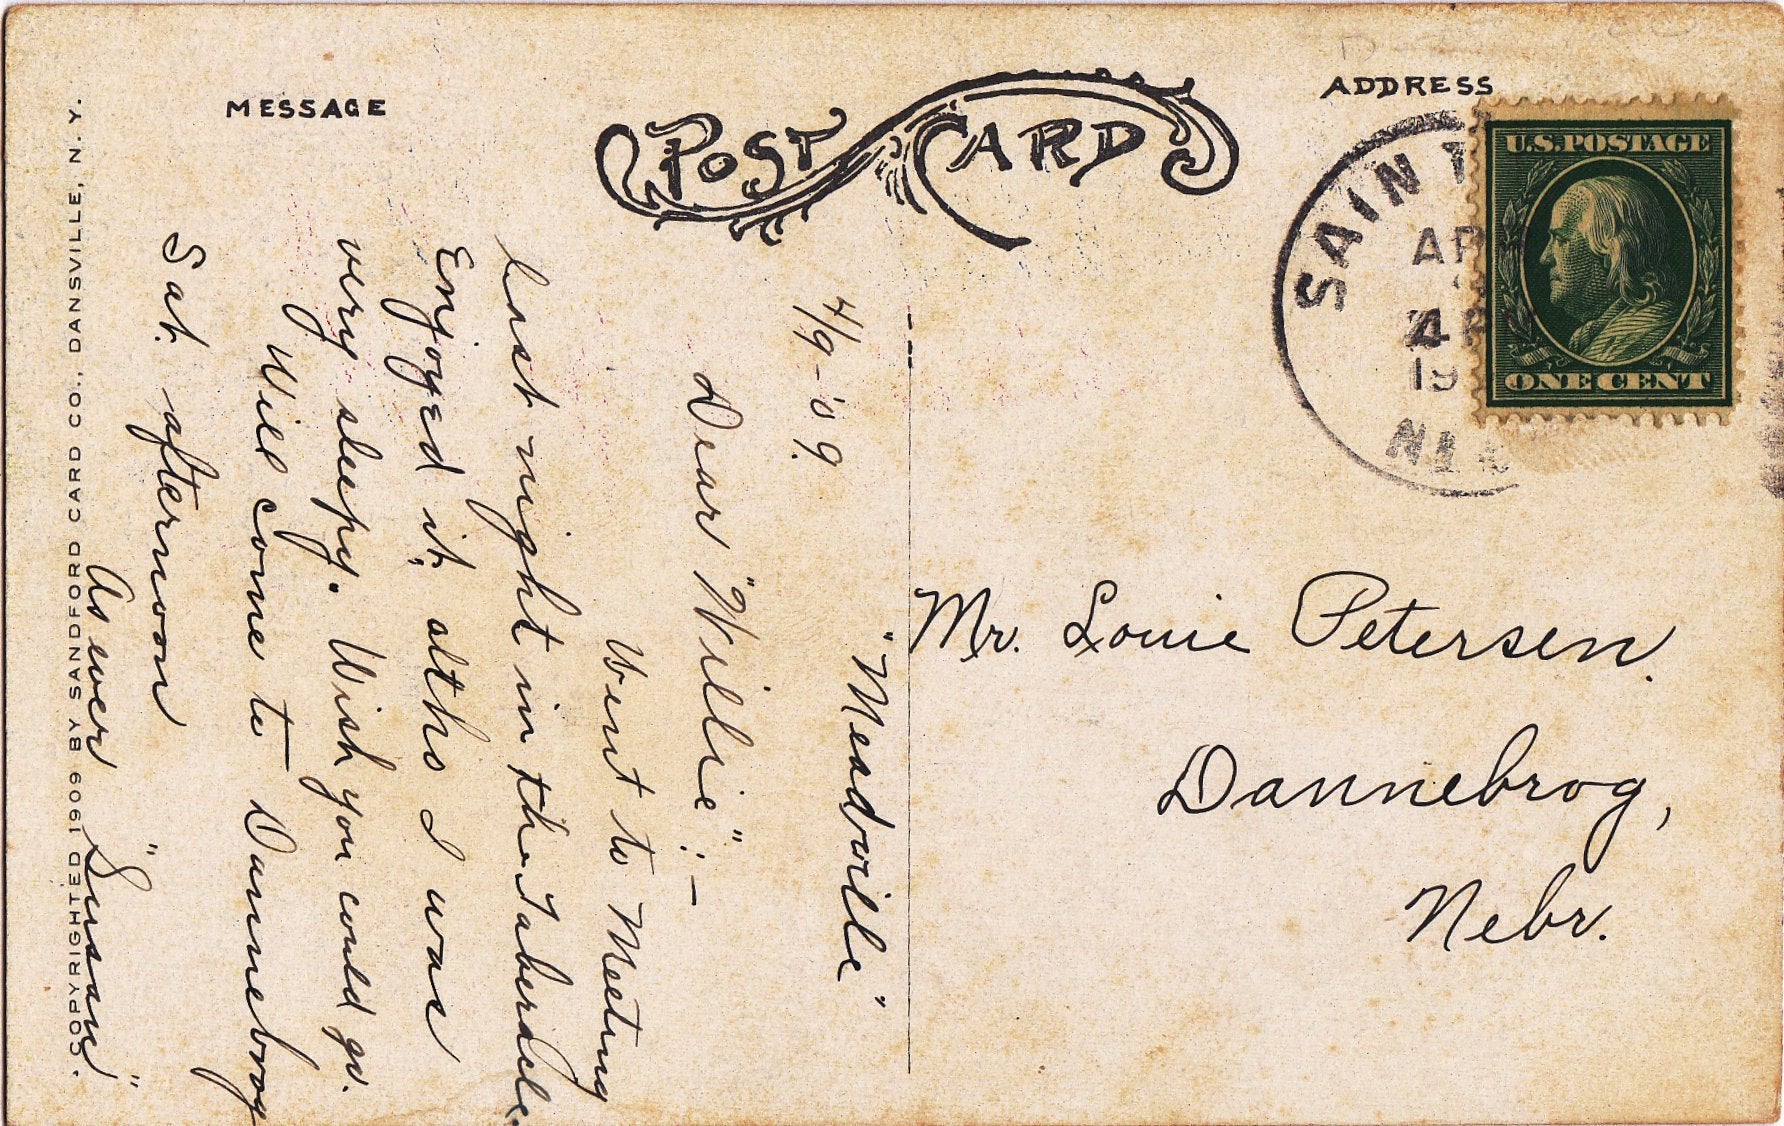 MESSAGE
POST CARD
ADDRESS
U.S.POSTAGE
ONE CENT
SAINT
4 P
19
"Meadville"
4/9-'09.
Dear "Willie":-
Went to Meeting
last night in the Tabernacle.
Enjoyed it, altho I was
very sleepy. Wish you could go.
Will come to Dannebrog
Sat. afternoon
As ever "Susan"
Mr. Louie Petersen.
Dannebrog,
Nebr.
COPYRIGHTED 1909 BY SANDFORD CARD CO., DANSVILLE, N. Y.